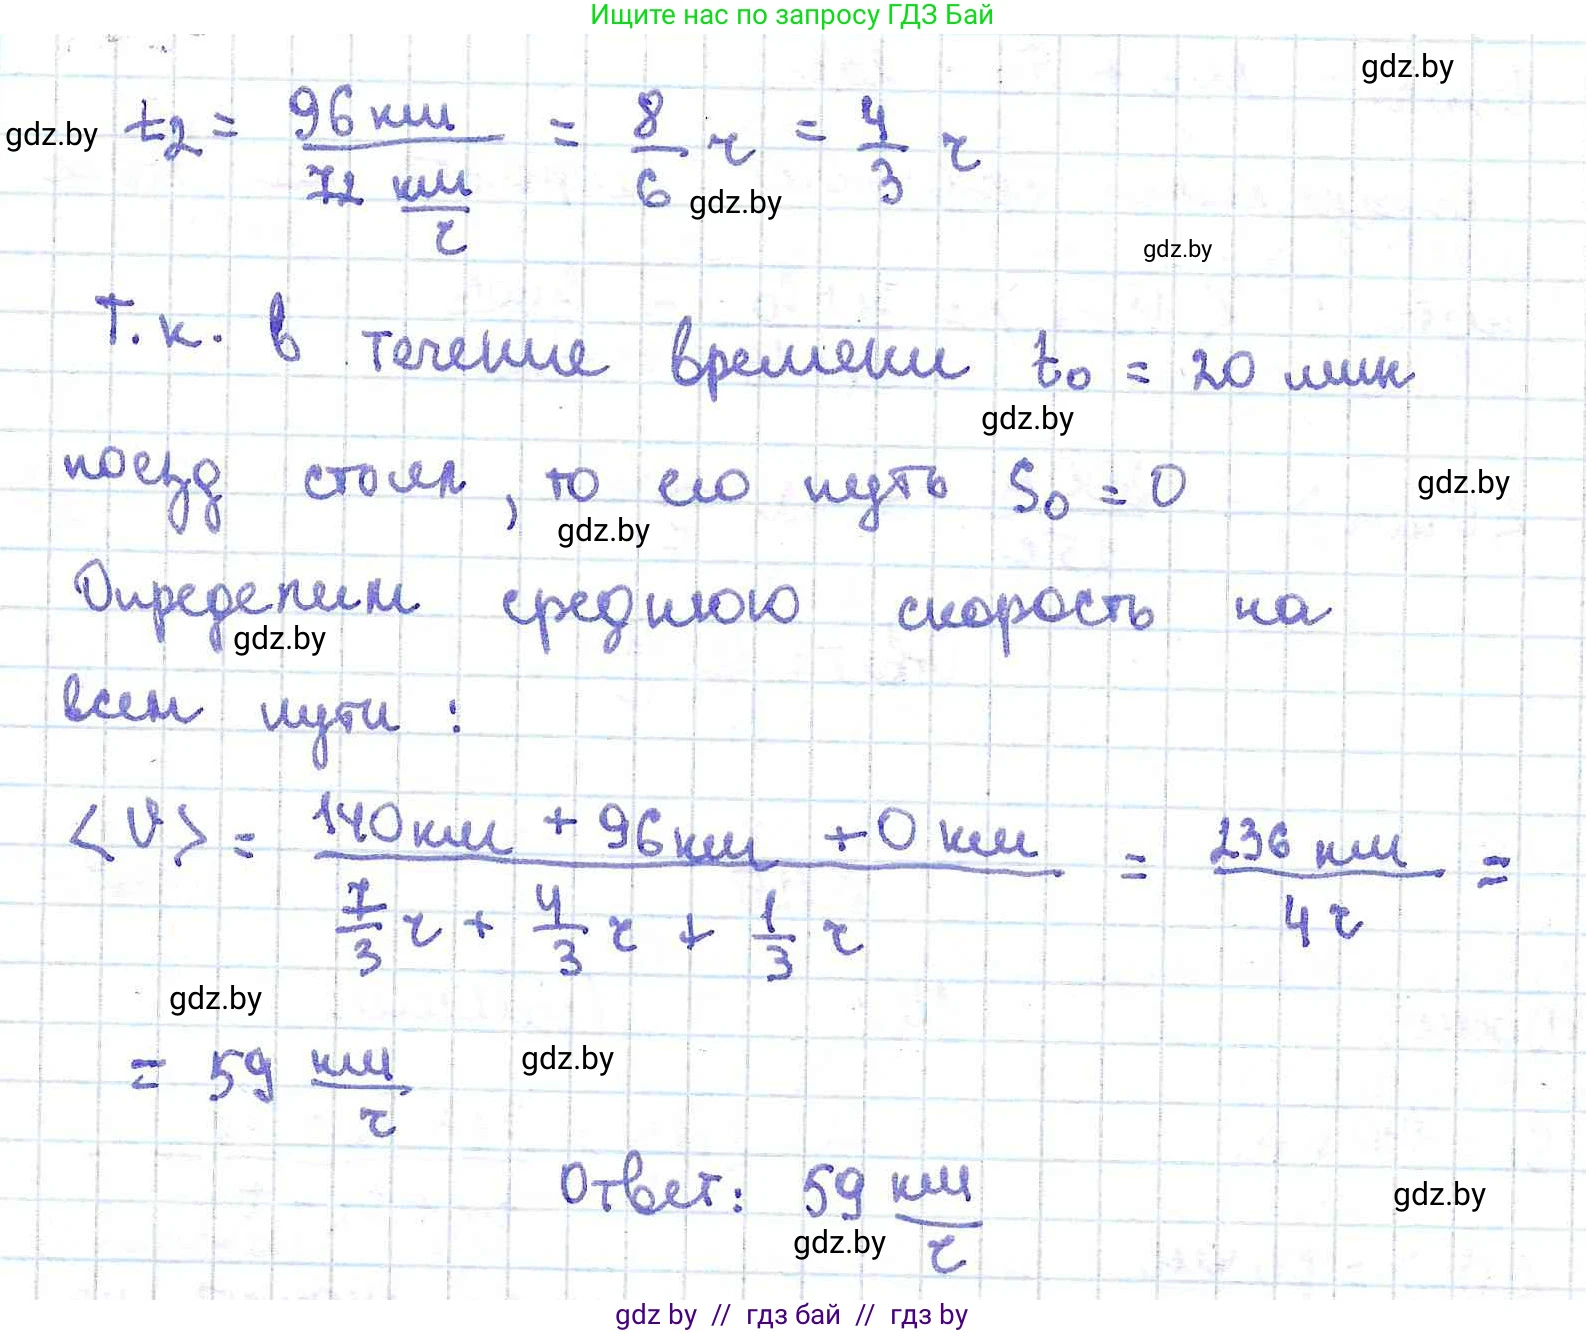 Ищите нас по запросу ГДЗ Бай
gdz.by
gdz.by
t₂ = 96 км / 72 км/ч = 8/6 ч = 4/3 ч
gdz.by
gdz.by
Т.к. в течение времени t₀ = 20 мин
gdz.by
поезд стоял, то его путь S₀ = 0
gdz.by
gdz.by
Определим среднюю скорость на
gdz.by
всем пути:
<υ> = 140 км + 96 км + 0 км / 7/3 ч + 4/3 ч + 1/3 ч = 236 км / 4 ч =
gdz.by
= 59 км/ч
gdz.by
Ответ: 59 км/ч
gdz.by
gdz.by
gdz by // гдз бай // гдз by